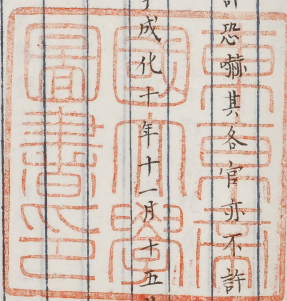 恐嚇其各官亦不許
成化十年十一月十五
東京帝
國大學
圖書印